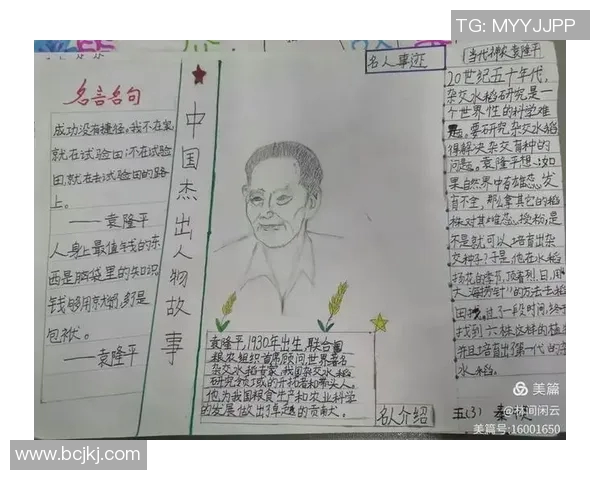 TG: MYYJJPP
名言名句
成功没有捷径。我不在家
就在试验田;不在试验
田,就在去试验田的路
上。
——袁隆平
人身上最值钱的东
西是脑袋里的知识
钱够用就
包袱。
——袁隆平
中国杰出人物故事
袁隆平,1930年出生,联合国
粮农组织首席顾问世界著名
杂交水稻专家,我国杂交水稻
研究领域的开拓者和带头人。
他为我国粮食生产和农业科学
的发展做出了卓越的贡献大。
名人介绍
名人事迹
当代神农袁隆平
20世纪五十年代,
杂交水稻研究是一
个世界性的科学难
题。要研究杂交水稻
得解决杂交育种的
问题。袁隆平想:如
果自然界中有雄蕊发
育不全,那么拿其它的稻
株对其雌蕊授粉,是
不是就可以培育出杂
交种子?于是他在水稻
扬花的季节,顶着烈日,用
大海捞针"的方法去稻
田找。过了一段时间,终于
找到六株这样的植
并且培育出了第一代的杂
水稻。
五(3) 秦
美篇
@林间闲云
美篇号:16001650
www.bcjkj.com